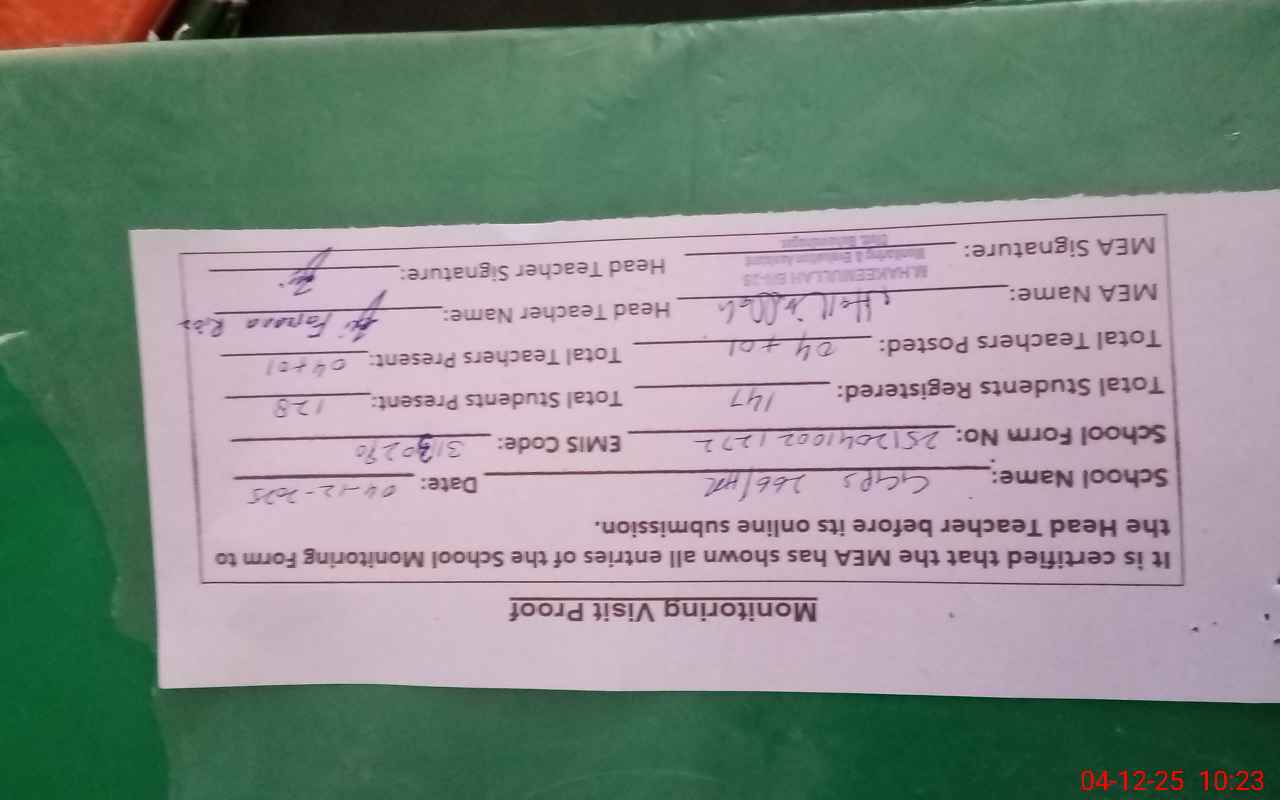 Monitoring Visit Proof
It is certified that the MEA has shown all entries of the School Monitoring Form to
the Head Teacher before its online submission.
School Name: GGPS 266/HR Date: 04-12-2025
School Form No: 2512041002 1272 EMIS Code: 31130290
Total Students Registered: 147 Total Students Present: 128
Total Teachers Posted: 04+01 Total Teachers Present: 04+01
MEA Name: Head Teacher Name: Farzana Riaz
M.HAKEEMULLAH BW-25
MEA Signature: Head Teacher Signature:
Monitoring & Evaluation Assistant
Distt. Bahawalnagar
04-12-25 10:23